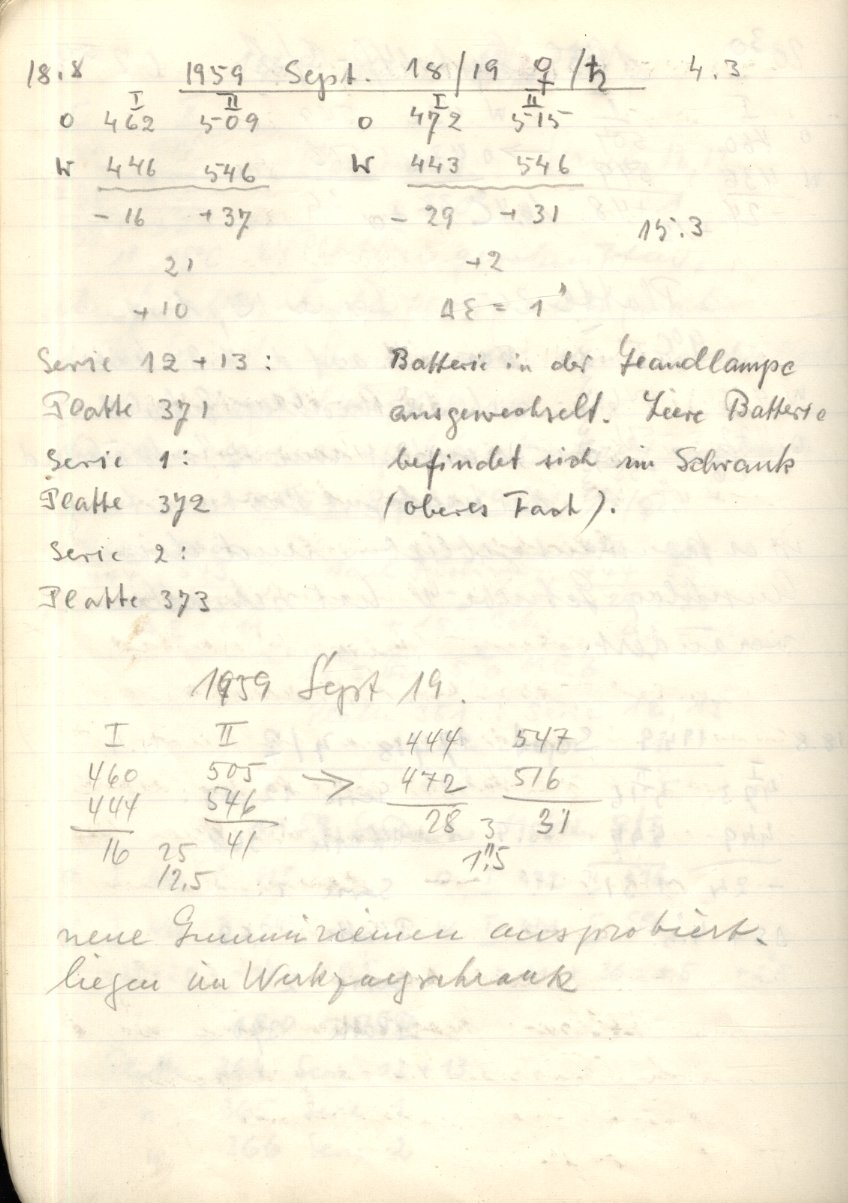 18.8 1959 Sept. 18/19 ♀/♄ 4.3
I II I II
O 462 509 O 472 515
W 446 546 W 443 546
- 16 +37 - 29 +31
15.3
21 +2
+10 Δε = 1'
Serie 12 + 13: Batterie in der Handlampe
Platte 371 ausgewechselt. Leere Batterie
Serie 1: befindet sich im Schrank
Platte 372 (oberes Fach).
Serie 2:
Platte 373
1959 Sept 19.
I II 444 547
460 505 > 472 516
444 546 28 3 31
16 25 41 1".5
12.5
neue Gummiriemen ausprobiert.
liegen im Werkzeugschrank